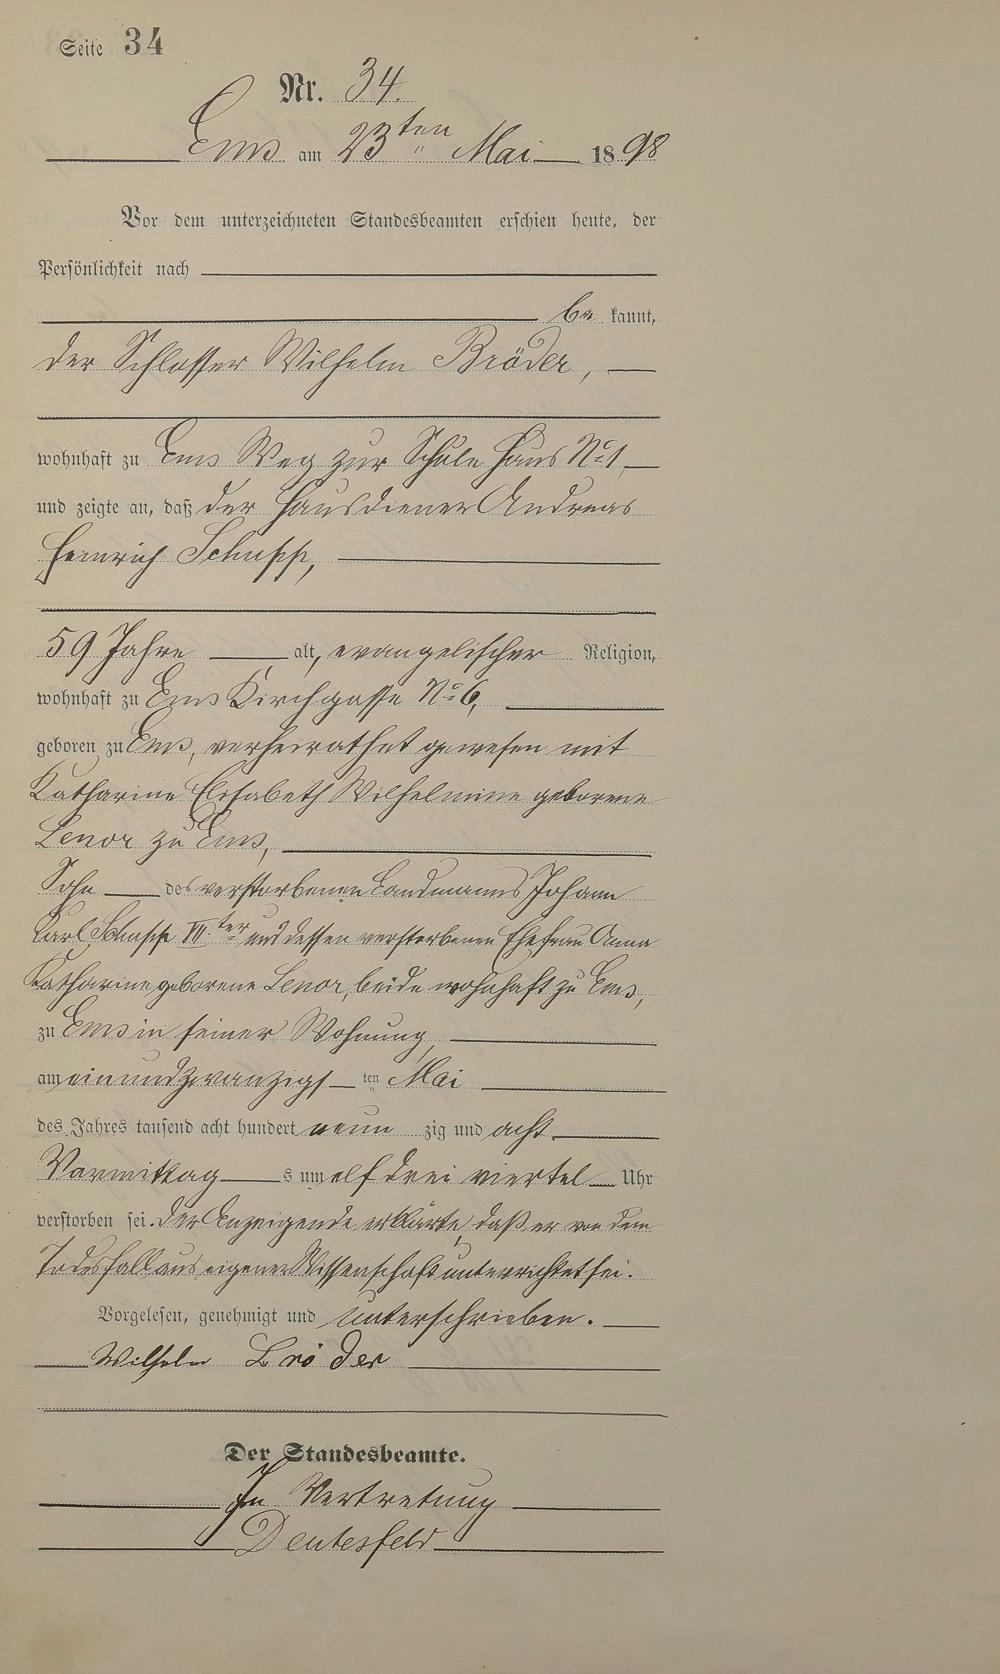 Seite 34
Nr. 34.
Ems am 23ten Mai 1898
Vor dem unterzeichneten Standesbeamten erschien heute, der
Persönlichkeit nach
be kannt,
der Schlosser Wilhelm Bröder,
wohnhaft zu Ems Weg zur Schule Haus No 1,
und zeigte an, daß der Hausdiener Andreas
Heinrich Schupp,
59 Jahre alt, evangelischer Religion,
wohnhaft zu Ems Kirchgasse No 6,
geboren zu Ems, verheirathet gewesen mit
Katharine Elisabeth Wilhelmine geborene
Lenor zu Ems,
Sohn des verstorbenen Landmanns Johann
Karl Schupp III.ter und dessen verstorbenen Ehefrau Anna
Katharine geborene Lenor, beide wohnhaft zu Ems,
zu Ems in seiner Wohnung,
am einundzwanzigs ten Mai
des Jahres tausend acht hundert neun zig und acht
Vormittag s um elf drei viertel Uhr
verstorben sei. Der Anzeigende erklärte, daß er von dem
Todesfall aus eigener Wissenschaft unterrichtet sei.
Vorgelesen, genehmigt und unterschrieben.
Wilhelm Bröder
Der Standesbeamte.
In Vertretung
Deutesfeld